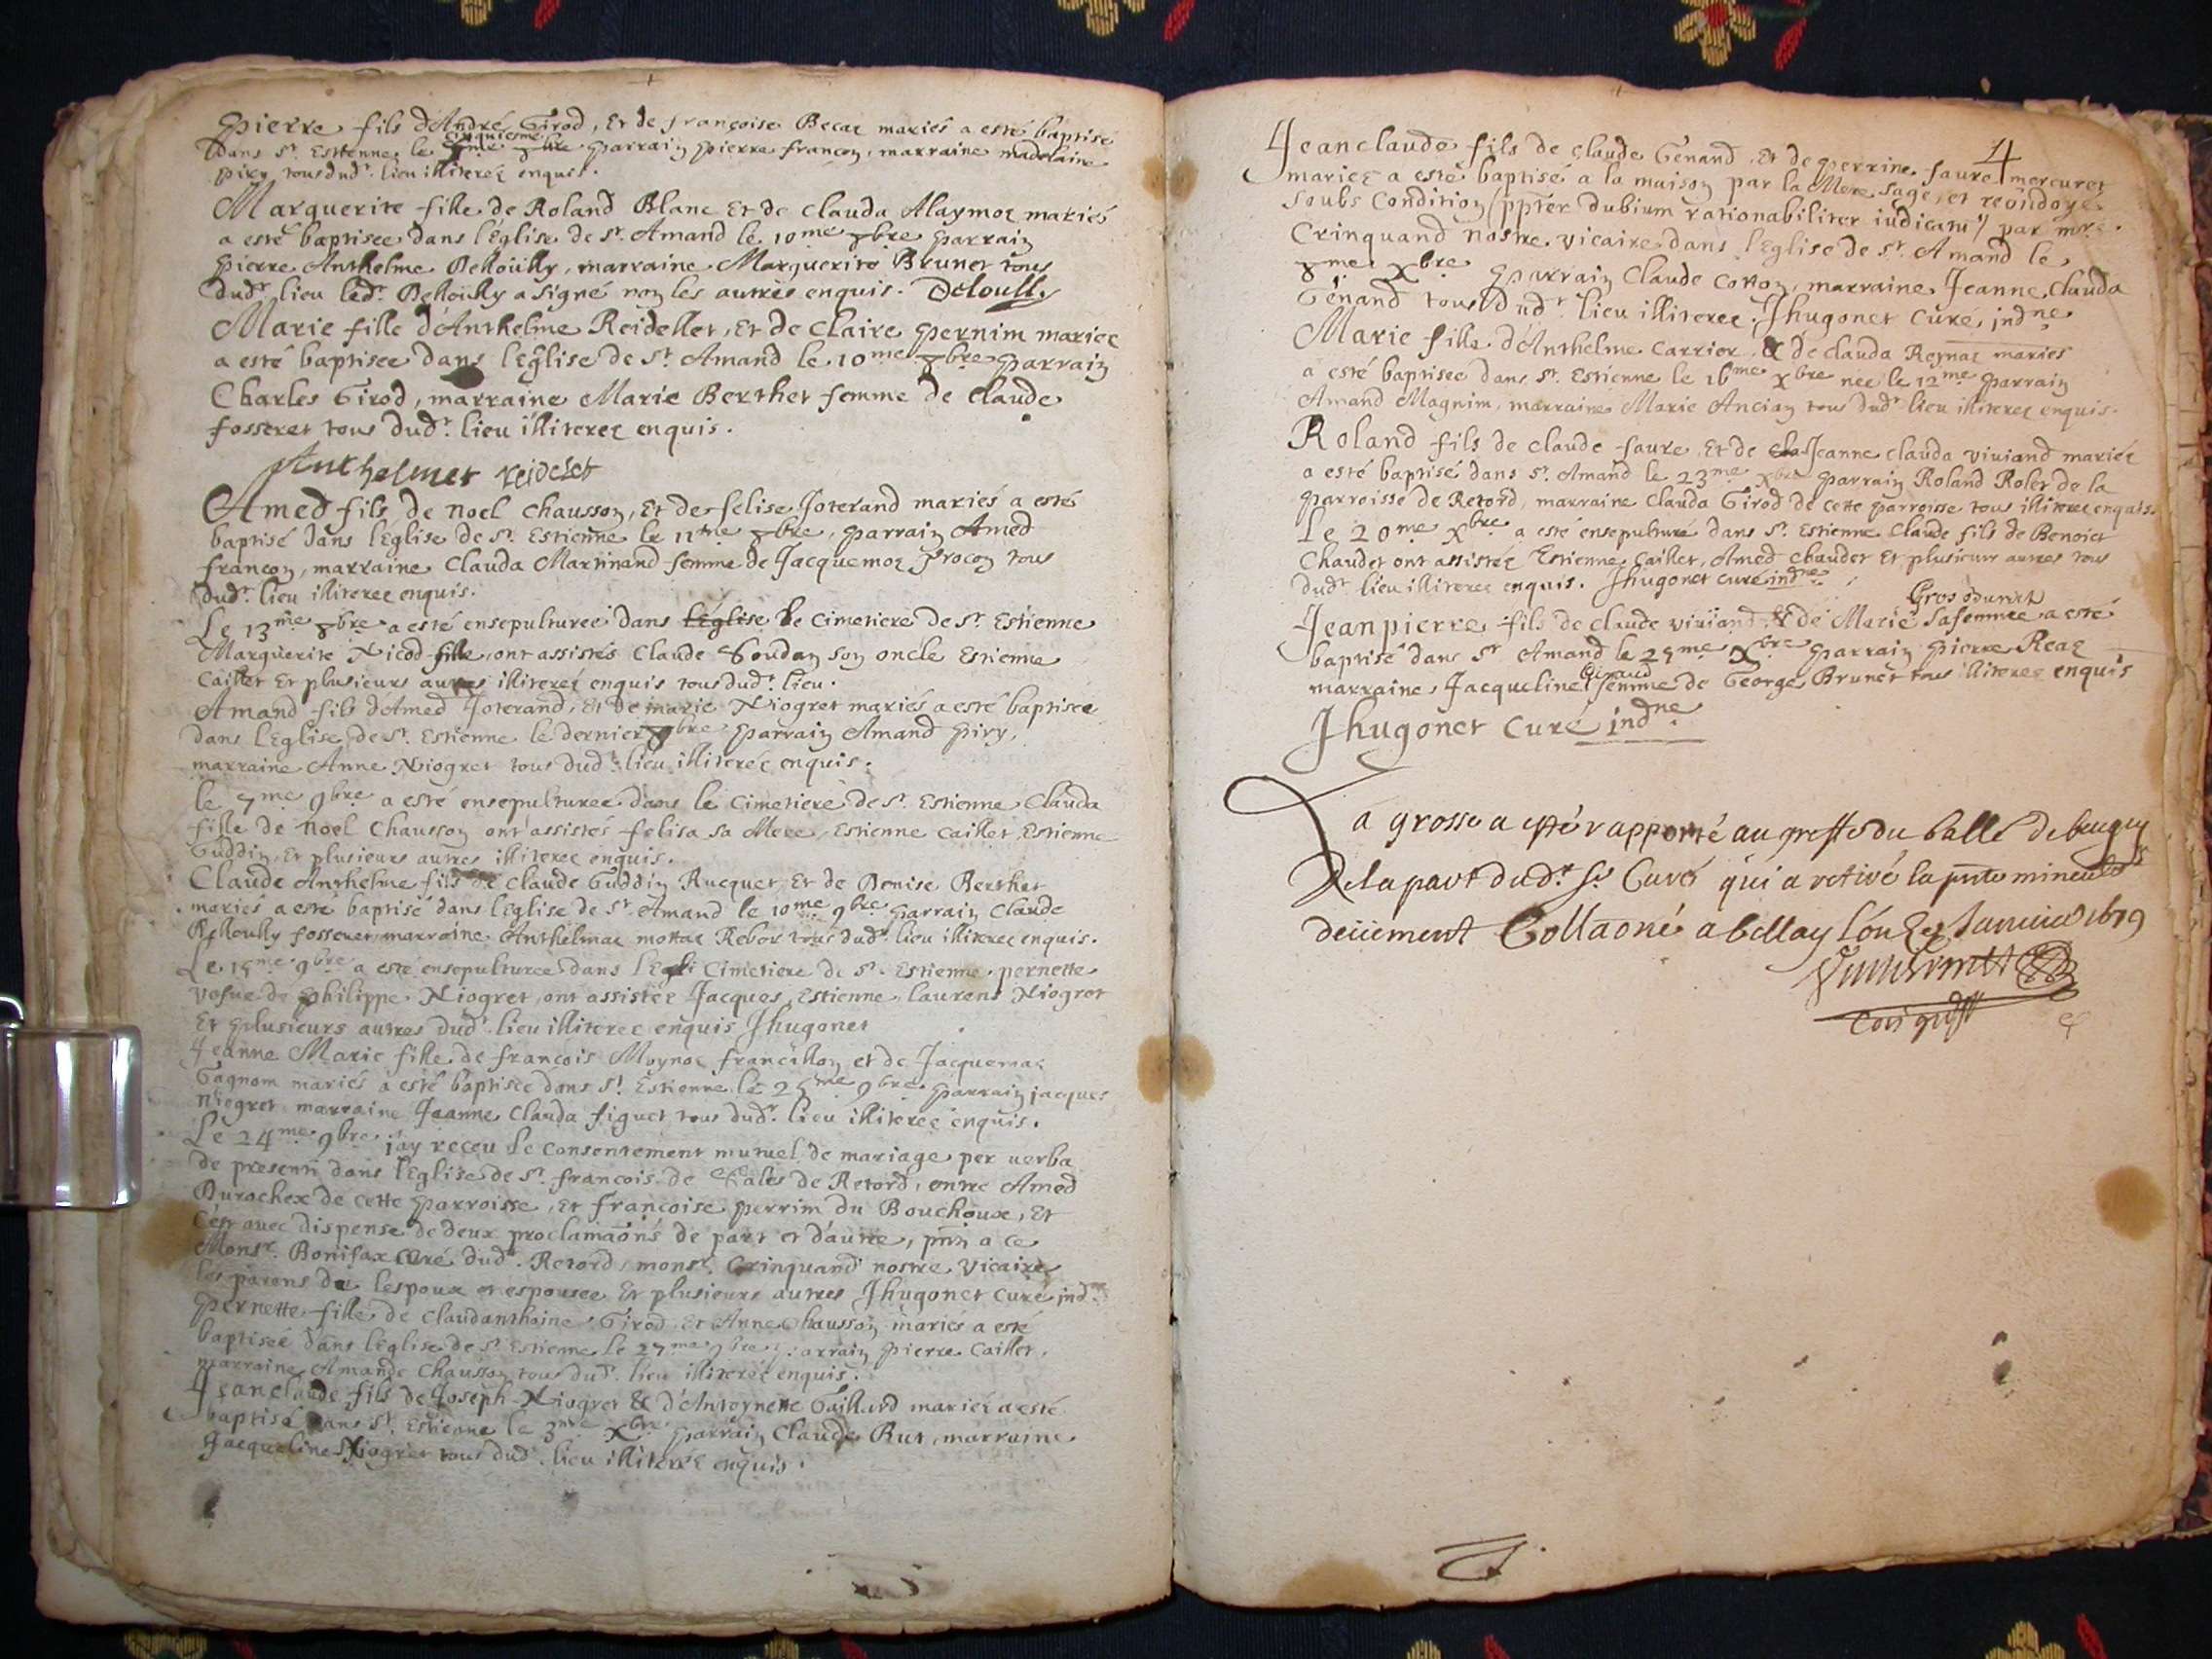 Pierre fils d'André Girod, Et de françoise Becat mariés a esté baptisé
cinquiesme
dans St. Estienne le 8bre parrain pierre francon, marraine madelaine
piry tous dudt. lieu illiterez enquis.
Marguerite fille de Roland Blanc Et de Clauda Alaymoz mariés
a esté baptisee dans l'Eglise de St. Amand le 10me 8bre parrain
Pierre Anthelme Delloully, marraine Marguerite Brunet tous
dudt lieu ledt. Delloully a signé non les autres enquis. Deloully
Marie fille d'Anthelme Reidellet, Et de Claire Pernim mariez
a esté baptisee dans l'Eglise de St. Amand le 10me 8bre parrain
Charles Girod, marraine Marie Berthet femme de Claude
fosseret tous dudt. lieu illiterez enquis.
Anthelmet reidelet
Amed fils de Noel Chausson, Et de felise Joterand mariés a esté
baptisé dans l'Eglise de St. Estienne le 11me 8bre, parrain Amed
francon, marraine Clauda Martinand femme de Jacquemoz procon tous
dudt. lieu illiterez enquis.
Le 13me 8bre a esté ensepulturée dans l'Eglise le Cimetiere de St. Estienne
Marguerite Nicod fille, ont assistés Claude Goudan son oncle Estienne
Caillet Et plusieurs autres illiterez enquis tous dudt. lieu.
Amand fils d'Amed Joterand, Et de marie Niogret mariés a esté baptisee
dans l'Eglise de St. Estienne le dernier 8bre parrain Amand piry,
marraine Anne Niogret tous dudt. lieu illiterez enquis.
le 7me 9bre a esté ensepulturee dans le Cimetiere de St. Estienne Clauda
fille de Noel Chausson ont assistés felisa sa Mere, Estienne Caillet, Estienne
Guddin, Et plusieurs autres illiterez enquis.
Claude Anthelme fils de Claude Guddin Rucquet, Et de Denise Berthet
mariés a esté baptisé dans l'Eglise de St. Amand le 10me 9bre parrain Claude
Delloully fosseret, marraine Anthelmaz mottaz Rebot tous dudt. lieu illiterez enquis.
Le 15me 9bre a esté ensepulturee dans l'Egli Cimetiere de St. Estienne pernette
vefue de Philippe Niogret, ont assistéz Jacques, Estienne, laurens Niogret
Et plusieurs autres dudt. lieu illiterez enquis Jhugonet
Jeanne Marie fille de francois Moynoz francillon, et de Jacquemaz
Gagnom mariés a esté baptisée dans St. Estienne le 25me 9bre parrain jacques
Niogret marraine Jeanne Clauda figuet tous dudt. lieu illiterez enquis.
Le 24me 9bre j'ay reçeu le consentement mutuel de mariage per verba
de presenti dans l'Eglise de St. francois de Sales de Retord, entre Amed
Durochex de cette parroisse, Et françoise perrim du Bouchoux, Et
c'est avec dispense de deux proclamaons de part et d'autre, pnts a ce
Monsr. Bonifax Curé dudt. Retord, monsr. Crinquand nostre Vicaire
les parens de lespoux et espousee Et plusieurs autres Jhugonet curé indne
Pernette fille de Claudanthoine Girod Et Anne Chausson mariés a esté
baptisee dans l'Eglise de St. Estienne le 27me 9bre parrain pierre Caillet,
marraine Amande Chausson tous dudt. lieu illiterez enquis.
Jeanclaude fils de Joseph Niogret & d'Antoynette Gailland mariez a esté
baptisé dans St. Estienne le 3me Xbre parrain Claude Rut, marraine
Jacqueline Niogret tous dudt. lieu illiterez enquis.
4
Jeanclaude fils de Claude Genand, Et de perrine faure mercuret
mariez a esté baptisé a la maison par la Mere sage, et reondoyé
soubs Condition (ppter dubium rationabiliter iudicatu) par mre.
Crinquand nostre vicaire dans l'Eglise de St. Amand le
8me Xbre parrain Claude Cotton, marraine Jeanne Clauda
Génand tous dudt. lieu illiterez. Jhugonet Curé indne
Marie fille d'Anthelme Carrier, & de Clauda Reynaz maries
a esté baptisee dans St. Estienne le 16me Xbre née le 12me parrain
Amand Magnim, marraine Marie Ancian tous dudt. lieu illiterez enquis.
Roland fils de Claude faure, Et de Cla Jeanne Clauda viviand mariéz
a esté baptisé dans St. Amand le 23me Xbre parrain Roland Rolet de la
parroisse de Retord, marraine Clauda Girod de cette parroisse tous illiterez enquis.
Le 20me Xbre a esté ensepulturé dans St. Estienne Claude fils de Benoict
Chaudet ont assistéz Estienne Caillet, Amed Chaudet Et plusieurs autres tous
dudt. lieu illiterez enquis. Jhugonet curé indne.
Grosdunet
Jeanpierre fils de Claude viviand, & de Marie sa femmee a esté
baptisé dans St. Amand le 25me Xbre parrain pierre Reaz
Giraud
marraine Jacqueline femme de George Brunet tous illiterez enquis
Jhugonet Curé indne
La grosse a esté rapporté au greffe du balle de beugey
De la part dudt. Sr Curé qui a retiré la pnte
deuement Collaoné a bellay l'on Janvier 1679